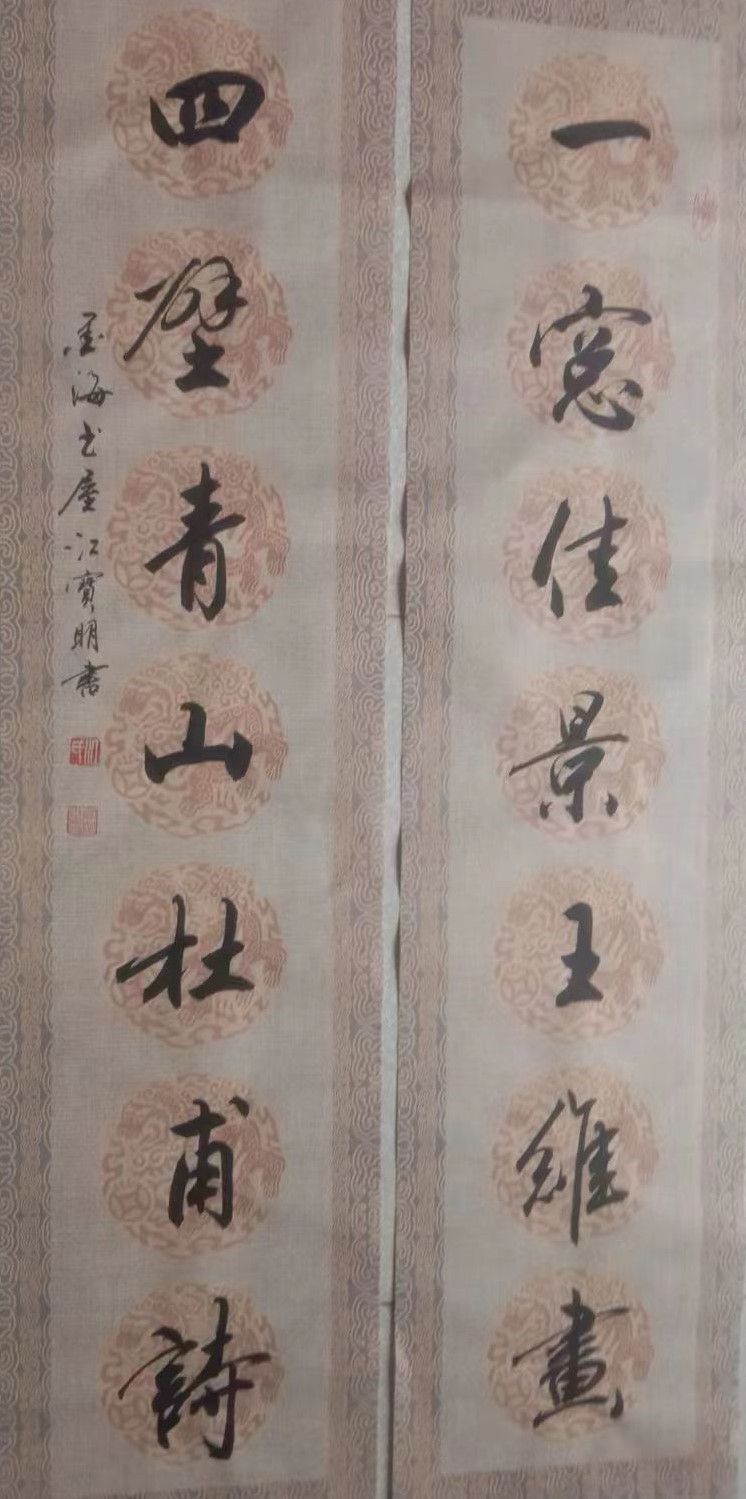 一窓佳景王維畫
四壁青山杜甫詩
墨海书屋江寶明書